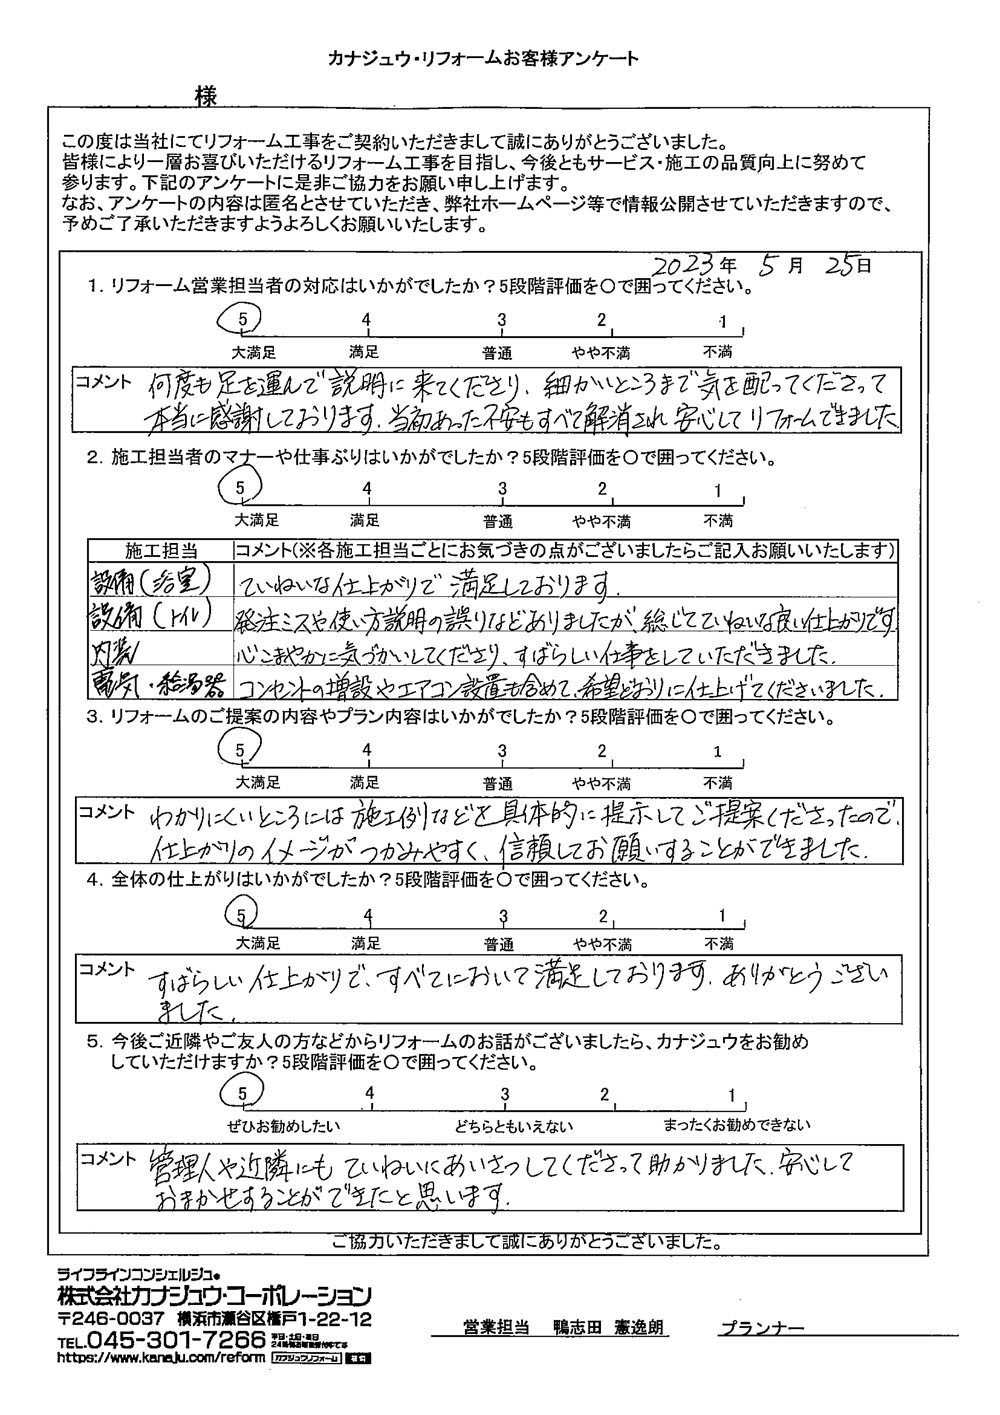 カナジュウ・リフォームお客様アンケート
様
この度は当社にてリフォーム工事をご契約いただきまして誠にありがとうございました。
皆様により一層お喜びいただけるリフォーム工事を目指し、今後ともサービス・施工の品質向上に努めて
参ります。下記のアンケートに是非ご協力をお願い申し上げます。
なお、アンケートの内容は匿名とさせていただき、弊社ホームページ等で情報公開させていただきますので、
予めご了承いただきますようよろしくお願いいたします。
2023年 5月 25日
1. リフォーム営業担当者の対応はいかがでしたか？5段階評価を〇で囲ってください。
5 4 3 2 1
大満足 満足 普通 やや不満 不満
コメント 何度も足を運んで説明に来てくださり、細かいところまで気を配ってくださって
本当に感謝しております。当初あった不安もすべて解消され安心してリフォームできました
2. 施工担当者のマナーや仕事ぶりはいかがでしたか？5段階評価を〇で囲ってください。
5 4 3 2 1
大満足 満足 普通 やや不満 不満
施工担当 コメント(※各施工担当ごとにお気づきの点がございましたらご記入お願いいたします)
設備(浴室) ていねいな仕上がりで満足しております.
設備(トイレ) 発注ミスや使い方説明の誤りなどありましたが、総じてていねいな良い仕上がりです
内装 心こまやかに気づかいしてくださり、すばらしい仕事をしていただきました.
電気・給湯器 コンセントの増設やエアコン設置も含めて、希望どおりに仕上げてくださいました.
3. リフォームのご提案の内容やプラン内容はいかがでしたか？5段階評価を〇で囲ってください。
5 4 3 2 1
大満足 満足 普通 やや不満 不満
コメント わかりにくいところには施工例などを具体的に提示してご提案くださったので、
仕上がりのイメージがつかみやすく、信頼してお願いすることができました.
4. 全体の仕上がりはいかがでしたか？5段階評価を〇で囲ってください。
5 4 3 2 1
大満足 満足 普通 やや不満 不満
コメント すばらしい仕上がりで、すべてにおいて満足しております. ありがとうござい
ました.
5. 今後ご近隣やご友人の方などからリフォームのお話がございましたら、カナジュウをお勧め
していただけますか？5段階評価を〇で囲ってください。
5 4 3 2 1
ぜひお勧めしたい どちらともいえない まったくお勧めできない
コメント 管理人や近隣にもていねいにあいさつしてくださって助かりました. 安心して
おまかせすることができたと思います.
ご協力いただきまして誠にありがとうございました。
ライフラインコンシェルジュ
株式会社カナジュウ・コーポレーション
〒246-0037 横浜市瀬谷区橋戸1-22-12
TEL.045-301-7266
https://www.kanaju.com/reform カナジュウリフォーム 検索
営業担当 鴨志田 憲逸朗 プランナー